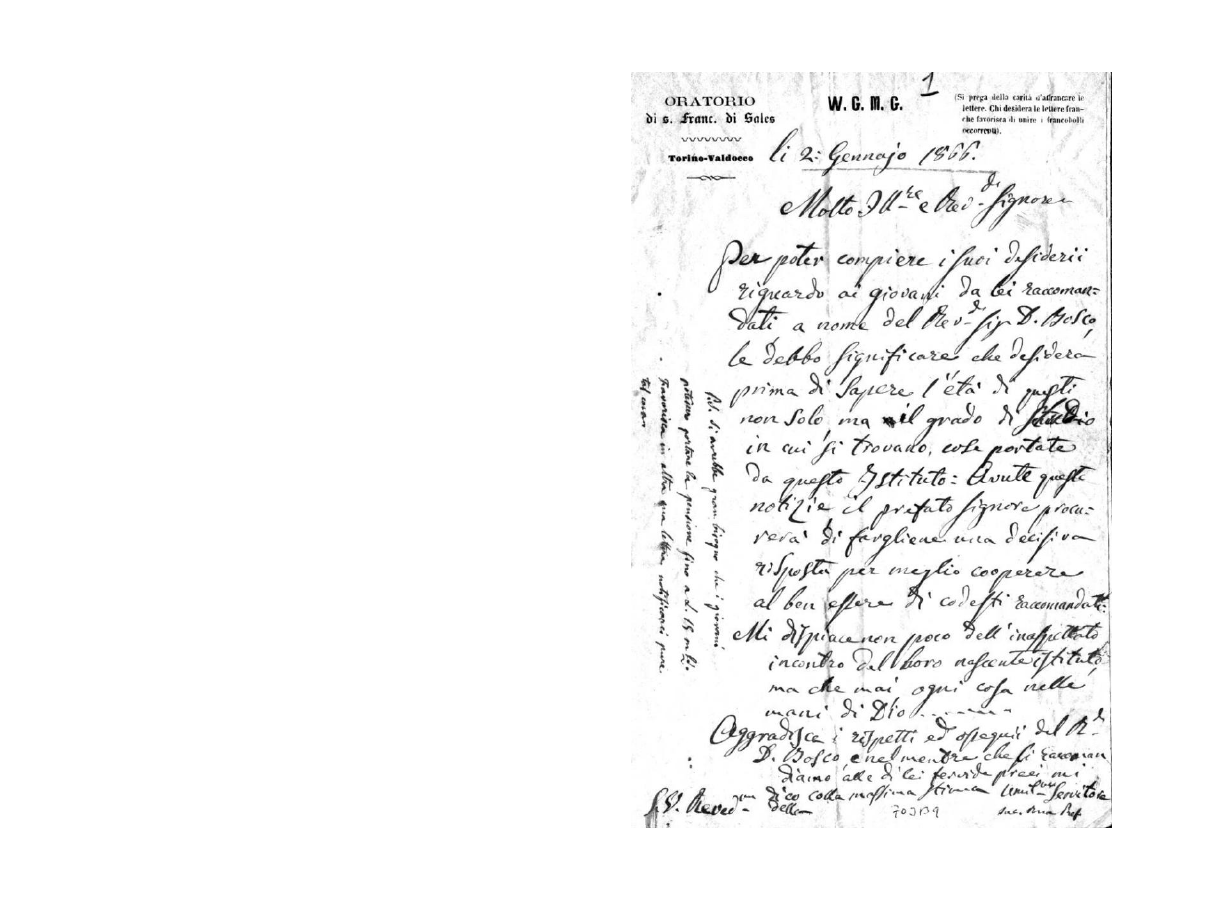 1
ORATORIO
di s. Franc. di Sales
Torino-Valdocco
W. G. M. G.
(Si prega della carità d'affrancare le
lettere. Chi desidera le lettere fran-
che favorisca di unire i francobolli
occorrenti).
li 2: Gennajo 1866.
Molto Ill.re e Rev.do Signore
Per poter compiere i suoi desiderii
riguardo ai giovani da lei raccoman=
dati a nome del Rev.do Sig. D. Bosco,
le debbo significare che desidera
prima di sapere l'età di questi
non solo, ma il grado di studio
in cui si trovano, cose portate
da questo Istituto: Avute queste
notizie il prefato Signore procu=
rerà di fargliene una decisiva
risposta per meglio cooperare
al ben essere di codesti raccomandati:
Mi dispiace non poco dell'inaspettato
incontro del loro nascente istituto,
ma che mai ogni cosa nelle
mani di Dio
Aggradisca i rispetti ed ossequii del R.do
D. Bosco, e nel mentre che si raccoman
diamo alle di lei fervide preci mi
dico colla massima stima Umil.mo Servitore
della
S. V. Rever.
703B9
P.S. Si avrebbe gran bisogno che i giovani
potessero portare la pensione fino a L. 15 o
Favorisca in altra sua lettera notificarci pure